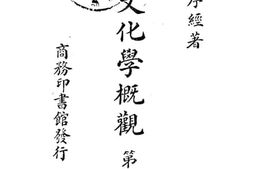 序經著
文化學概觀 第
商務印書館發行